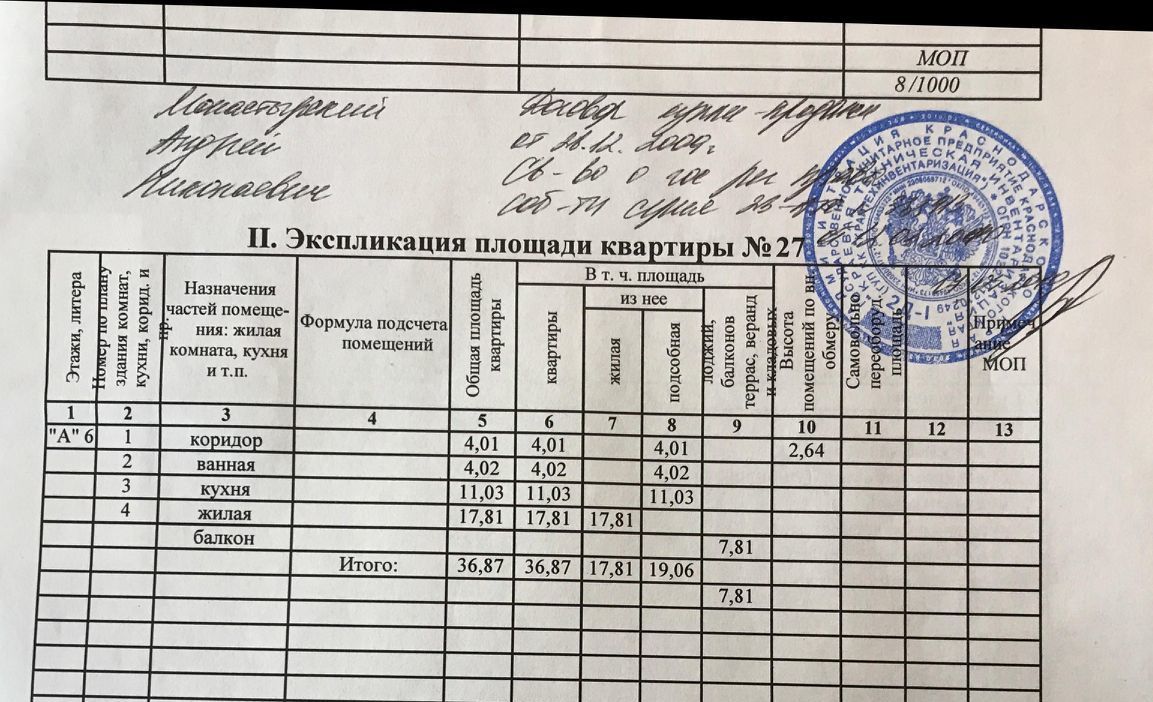 МОП
8/1000
Монастырский Договор купли-продажи
Андрей от 28.12.2009г
Николаевич Св-во о гос рег права
соб-ти серия 23-
II. Экспликация площади квартиры №27
Этажи, литера
Номер по плану здания комнат, кухни, корид. и пр.
Назначения частей помеще-
ния: жилая
комната, кухня
и т.п.
Формула подсчета
помещений
Общая площадь
квартиры
В т. ч. площадь
квартиры
из нее
жилая
подсобная
лоджий,
балконов
террас, веранд
и кладовых
Высота
помещений по вн.
обмеру
Самовольно
переоборуд.
площадь
Примеч
ание
МОП
1 2 3 4 5 6 7 8 9 10 11 12 13
"А" 6 1 коридор 4,01 4,01 4,01 2,64
2 ванная 4,02 4,02 4,02
3 кухня 11,03 11,03 11,03
4 жилая 17,81 17,81 17,81
балкон 7,81
Итого: 36,87 36,87 17,81 19,06
7,81